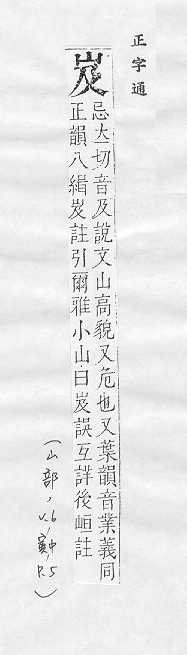 正字通
岌
忌立切音及說文山高貌又危也又葉韻音業義同
正韻八緝岌註引爾雅小山曰岌誤互詳後峘註
(山部, v.6, 寅中, P.5)